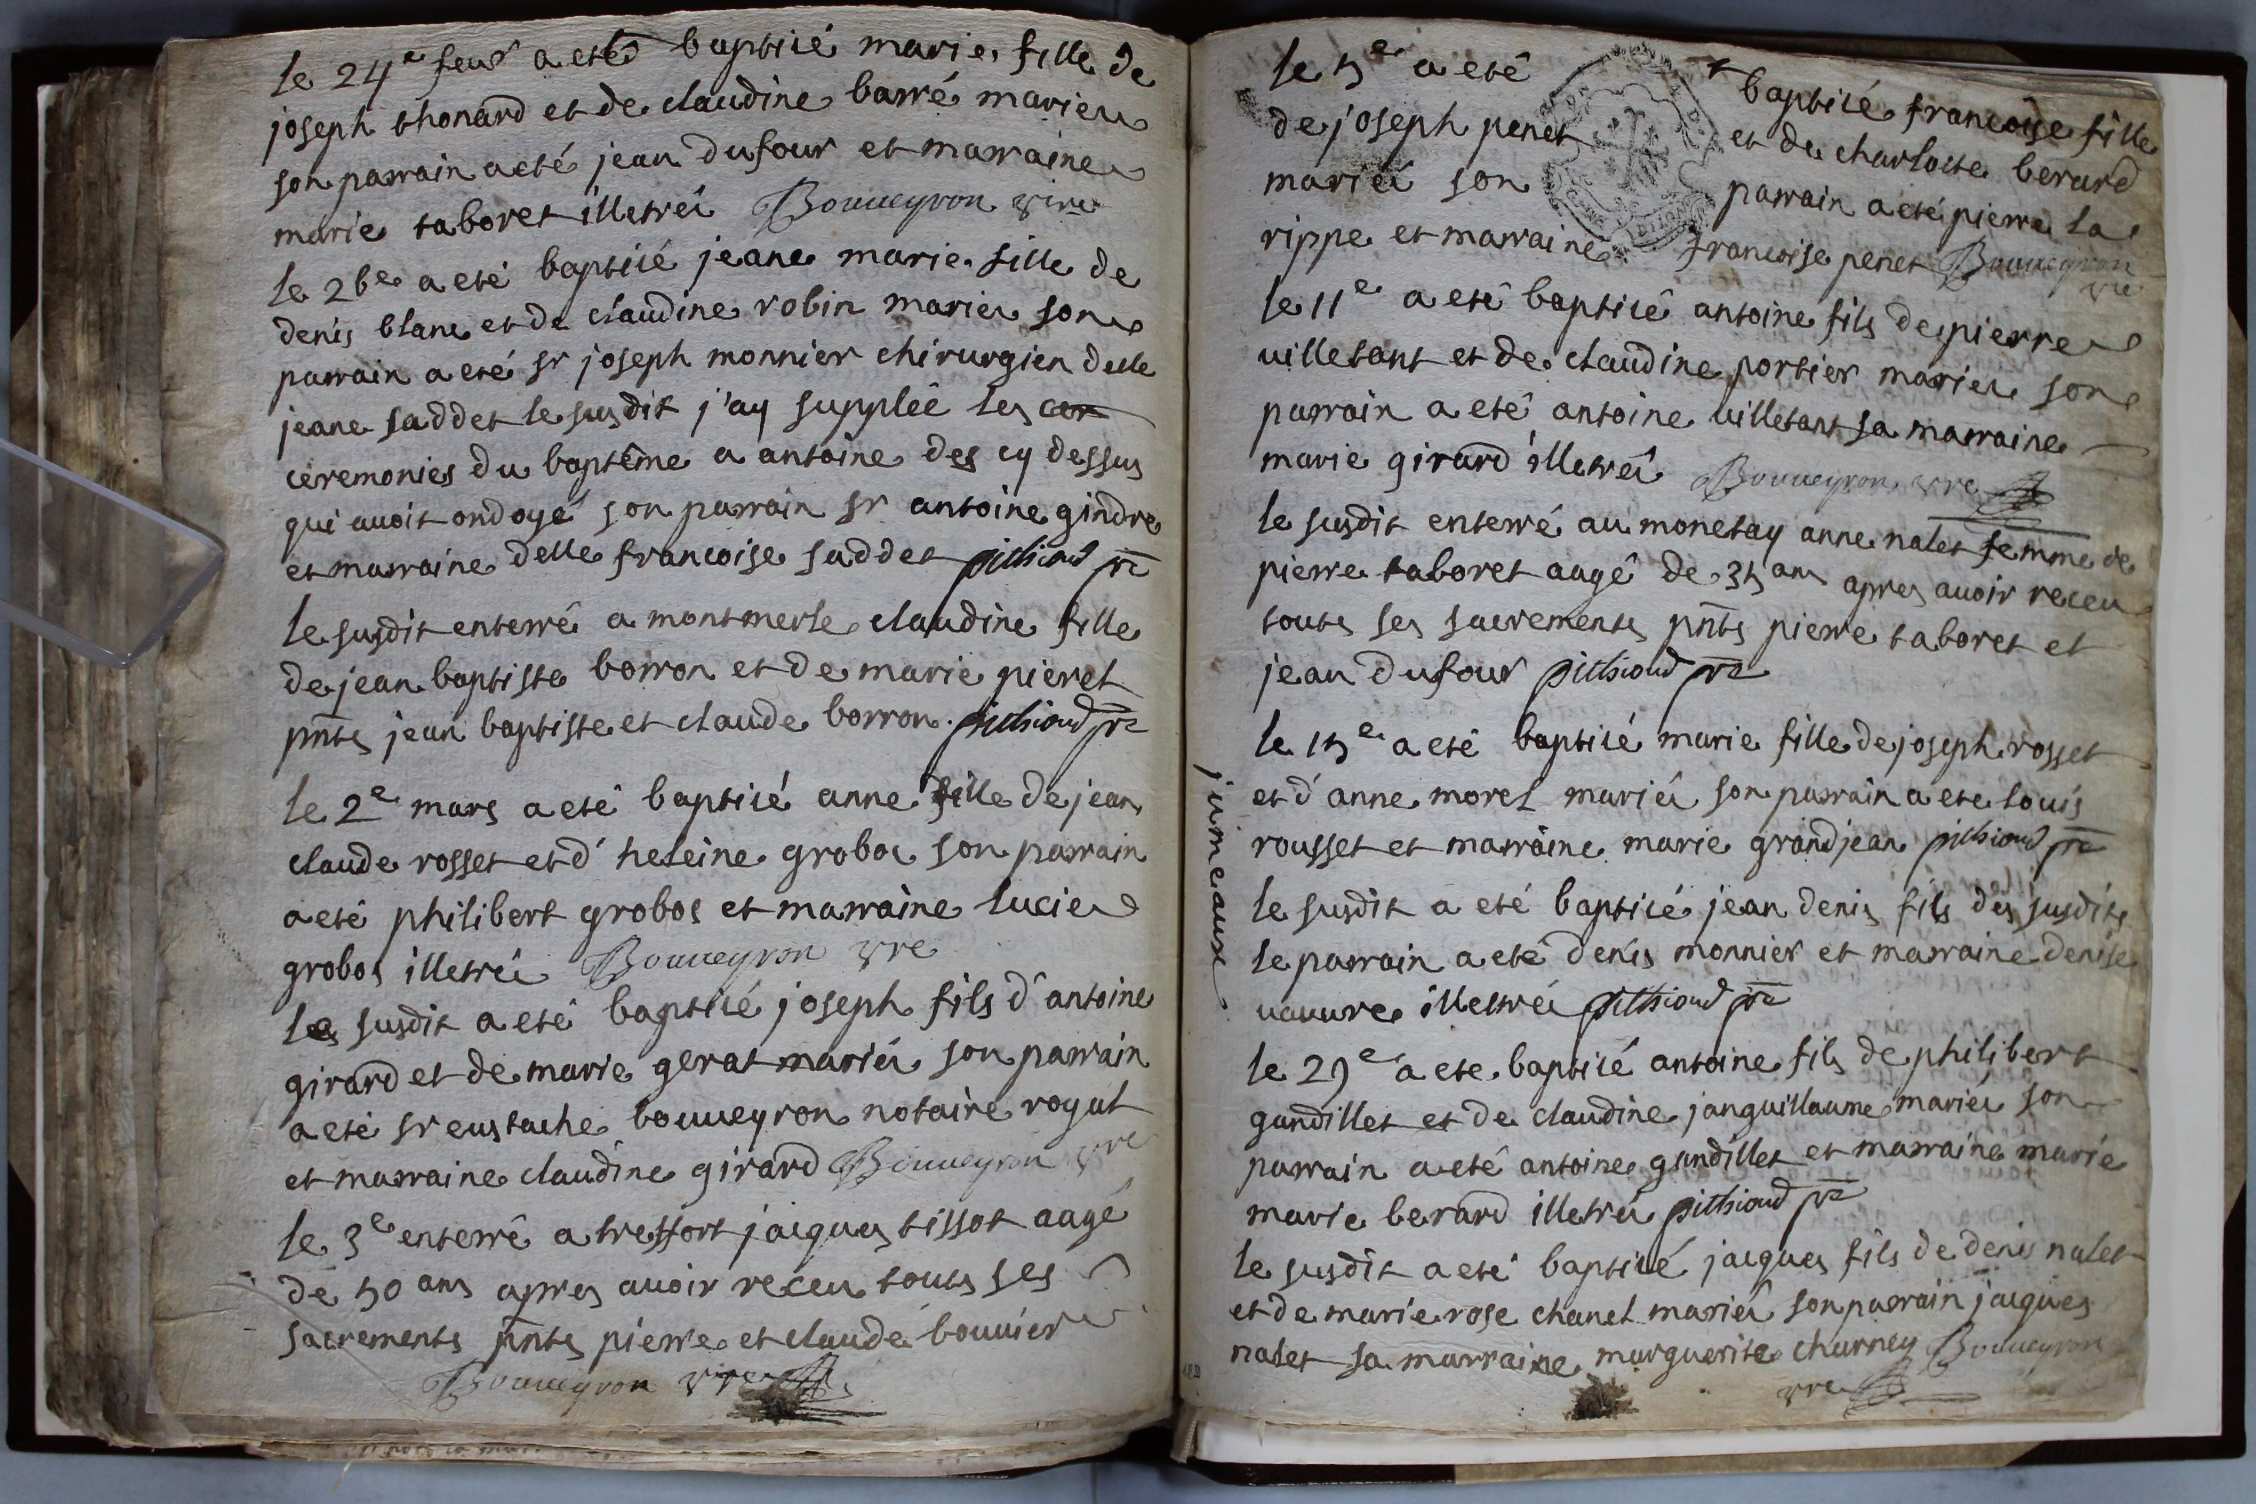 le 24e feur a eté baptisé marie fille de
joseph thonard et de claudine barré mariez
son parrain a eté jean dufour et marraine
marie taboret illetréz Bouueyron vire
le 26e a eté baptisé jeane marie fille de
denis blanc et de claudine robin mariez son
parrain a eté sr joseph monnier chirurgien delle
jeane saddet le susdit j'ay suppléé les cer
ceremonies du baptême a antoine des cy dessus
qui auoit ondoyé son parrain sr antoine gindre
et marraine delle francoise saddet pithioud pre
le susdit enterré a montmerle claudine fille
de jean baptiste borron et de marie pieret
pnts jean baptiste et claude borron pithioud pre
le 2e mars a eté baptisé anne fille de jean
claude rosset et d'heleine grobos son parrain
a eté philibert grobos et marraine lucie
grobos illetréz Bouueyron vre
le susdit a eté baptisé joseph fils d'antoine
girard et de marie gerat mariéz son parrain
a eté sr eustache bouueyron notaire royal
et marraine claudine girard Bouueyron vre
le 3e enterré a treffort jacques tissot aagé
de 50 ans apres auoir receu touts ses
sacrements pnts pierre et claude bouuier
Bouueyron vre
le 5e a eté baptisé francoise fille
de joseph penet et de charlotte berard
mariéz son parrain a eté pierre la
rippe et marraine francoise penet Bouueyron
vre
le 11e a eté baptisé antoine fils de pierre
uilletant et de claudine portier mariez son
parrain a eté antoine uilletant sa marraine
marie girard illetréz Bouueyron vre
le susdit enterré au monetay anne nalet femme de
pierre taboret aagé de 35 ans apres auoir receu
touts ses sacrements pnts pierre taboret et
jean dufour pithioud pre
le 15e a eté baptisé marie fille de joseph rosset
et d'anne morel mariéz son parrain a eté louis
rousset et marraine marie grandjean pithioud pre
jumeaux
le susdit a eté baptisé jean denis fils des susdits
le parrain a eté denis monnier et marraine denise
uauure illetréz pithioud pre
le 29e a eté baptisé antoine fils de philibert
gandillet et de claudine janguillaume mariéz son
parrain a eté antoine gandillet et marraine marie
marie berard illetréz pithioud pre
le susdit a eté baptisé jacques fils de denis nalet
et de marie rose chanel mariéz son parrain jacques
nalet sa marraine marguerite charney Bouueyron
vre